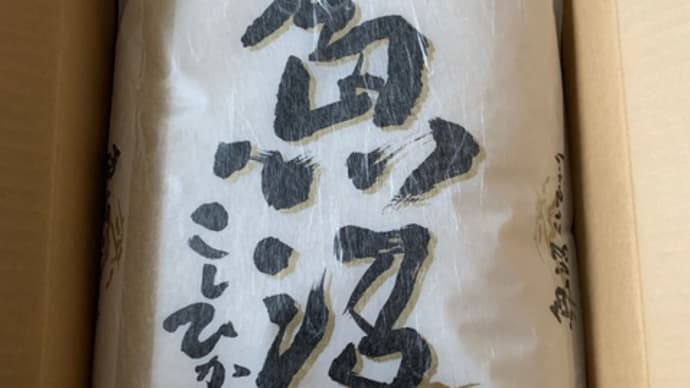 魚沼
こしひか